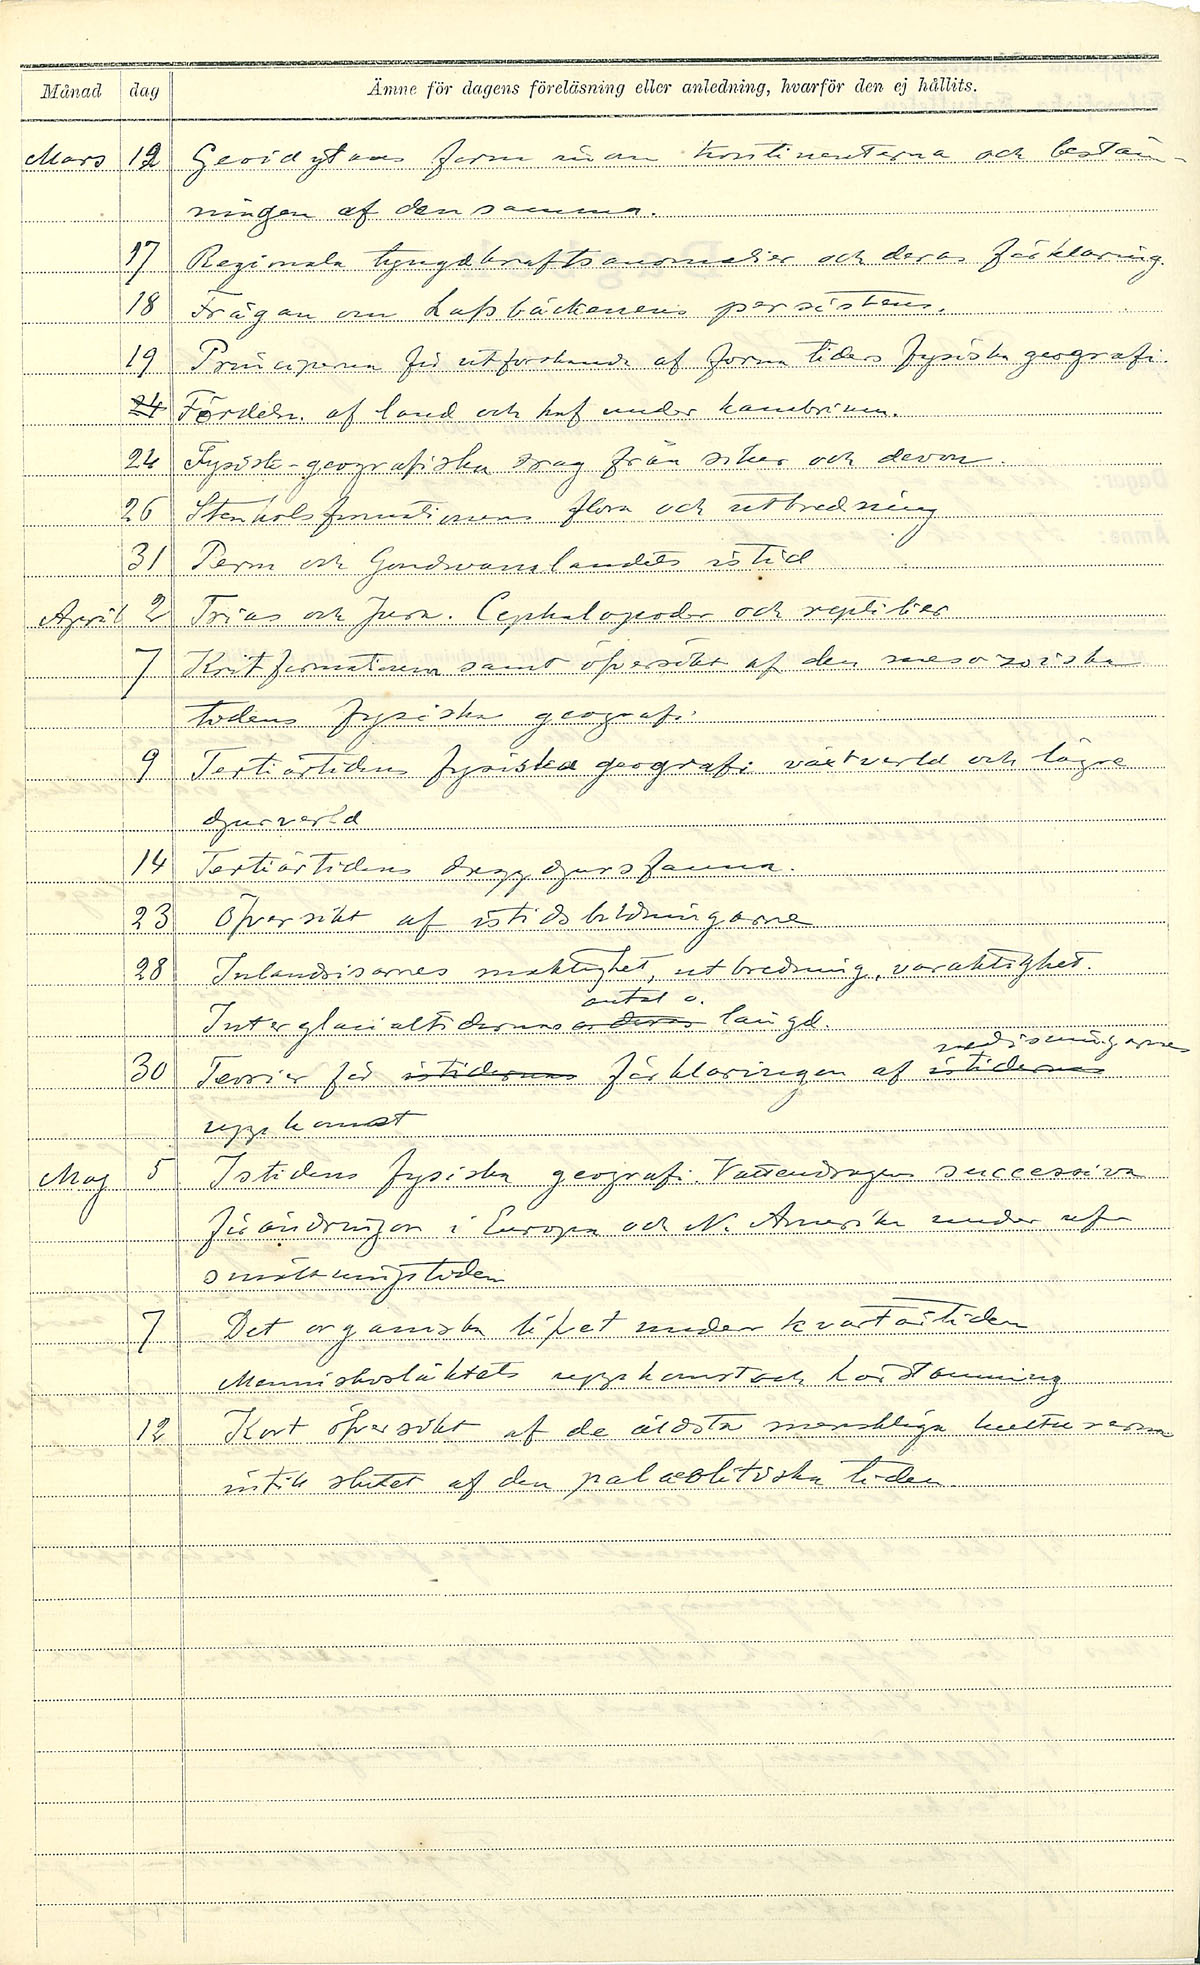 Månad dag Ämne för dagens föreläsning eller anledning, hvarför den ej hållits.
Mars 12 Geoidytans form inom kontinenterna och bestäm-
ningen af densamma.
17 Regionala tyngdkraftsanomalier och deras förklaring.
18 Frågan om hafsbäckenens persistens.
19 Principerna för utforskande af forna tiders fysiska geografi.
24 Fördeln. af land och haf under kambrium.
24 Fysisk-geografiska drag från silur och devon.
26 Stenkolsformationens flora och utbredning
31 Perm och Gondwanalandets istid
April 2 Trias och Jura. Cephalopoder och reptilier
7 Kritformationen samt öfversikt af den mesozoiska
tidens fysiska geografi.
9 Tertiärtidens fysiska geografi växtverld och lägre
djurverld
14 Tertiärtidens däggdjursfauna.
23 Öfversikt af istidsbildningarne
28 Inlandsisarnes mäktighet, utbredning, varaktighet.
antal o.
Interglacialtidernas längd.
nedisningarnes
30 Teorier för istidernas förklaringen af istidernas
uppkomst
Maj 5 Istidens fysiska geografi. Vattendragens successiva
förändringar i Europa och N. Amerika under af-
smältningstiden
7 Det organiska lifvet under kvartärtiden
Menniskosläktets uppkomst och härstamning
12 Kort öfversikt af de äldsta menskliga kulturerna
intill slutet af den palaeolitiska tiden.